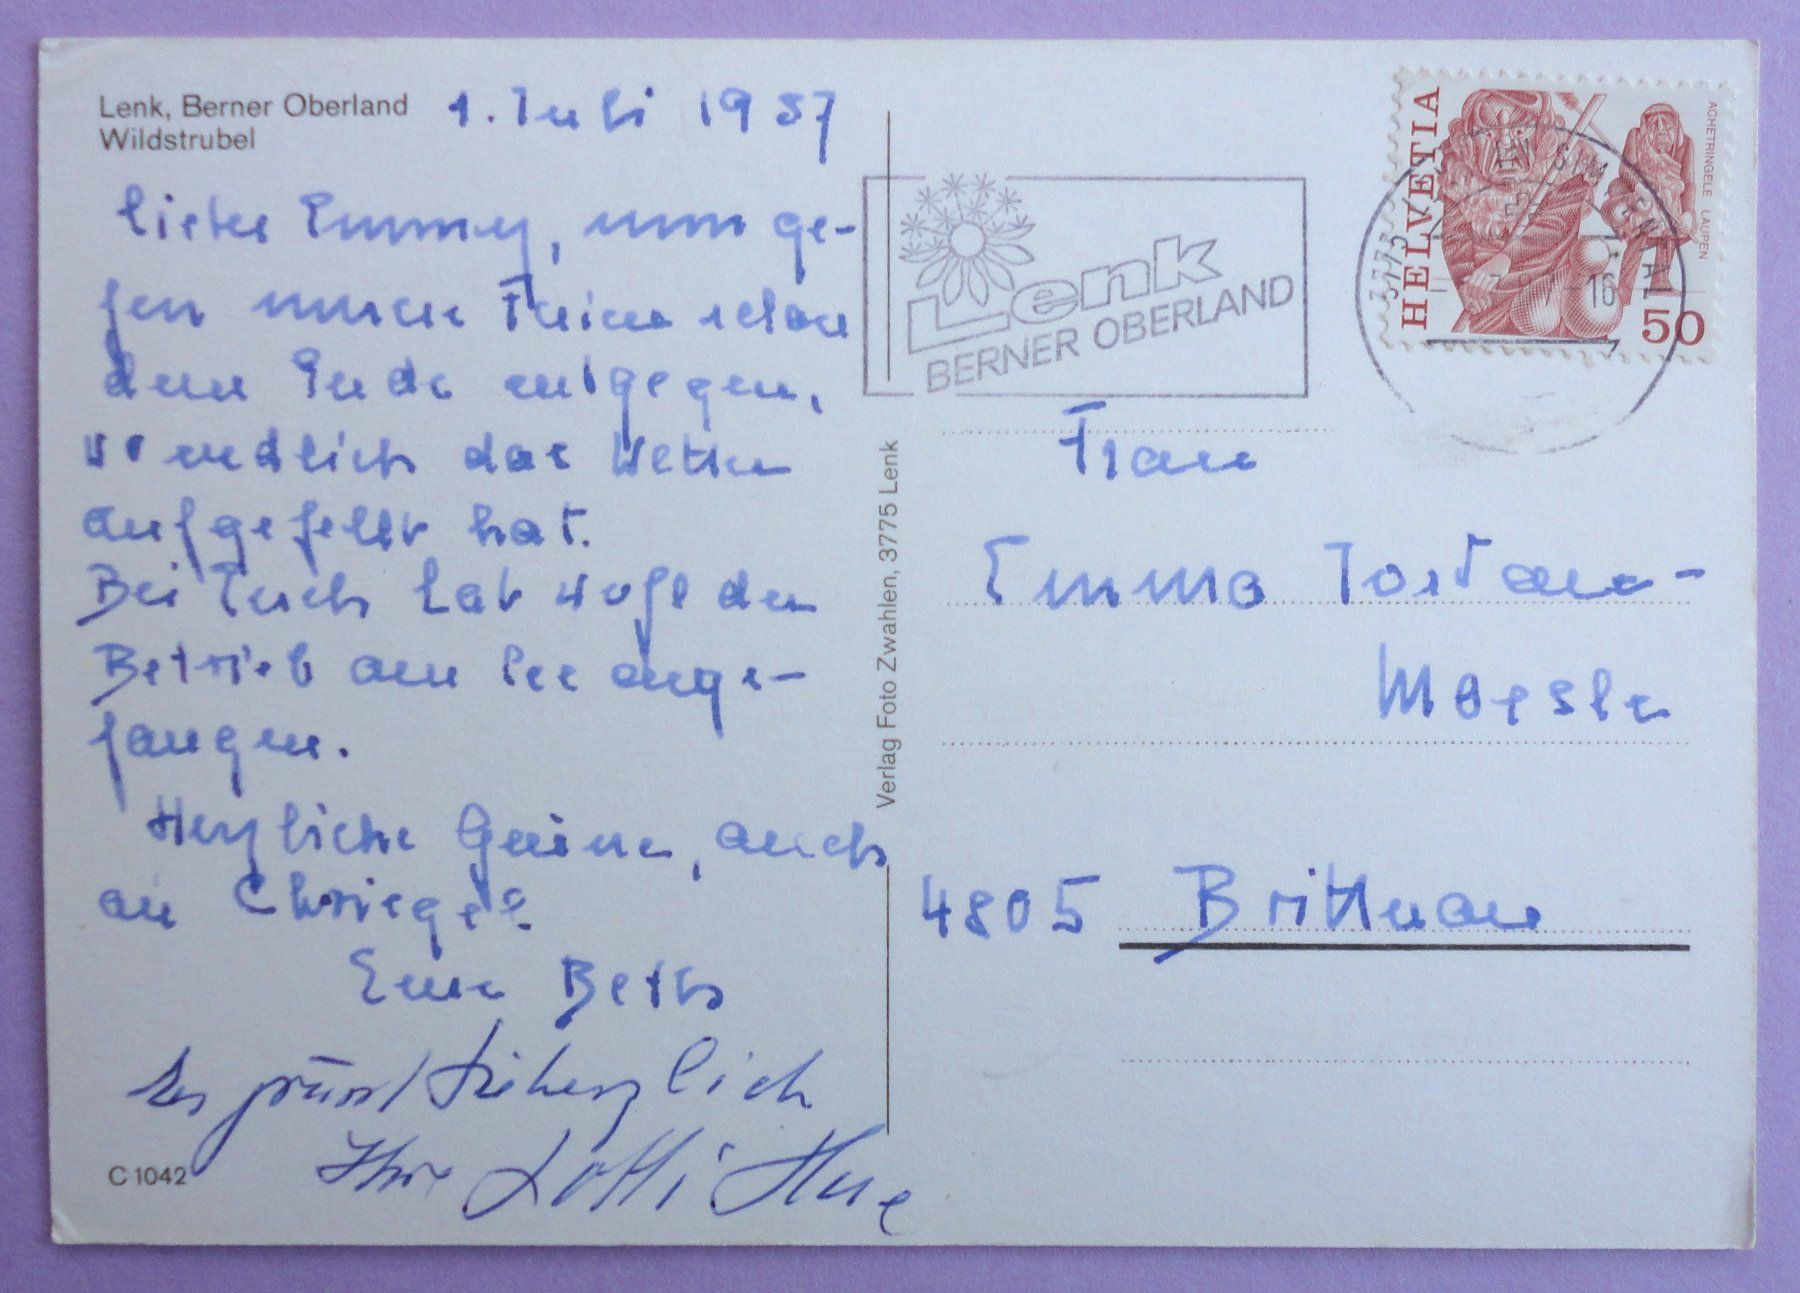 Lenk, Berner Oberland
Wildstrubel
1. Juli 1987
Liebe Emmy, nun ge-
hen unsere Ferien schon
dem Ende entgegen,
wo endlich das Wetter
aufgehellt hat.
Bei Euch hat wohl der
Betrieb am See ange-
fangen.
Herzliche Grüsse, auch
an
Eure Beth
Es grüsst herzlich
Ihre Lotti
C 1042
Verlag Foto Zwahlen, 3775 Lenk
Lenk
BERNER OBERLAND
HELVETIA
ACHETRINGELE LAUPEN
50
3775 LENK IM SIMMENTAL
Frau
Emma
Moesle
4805 Brittnau